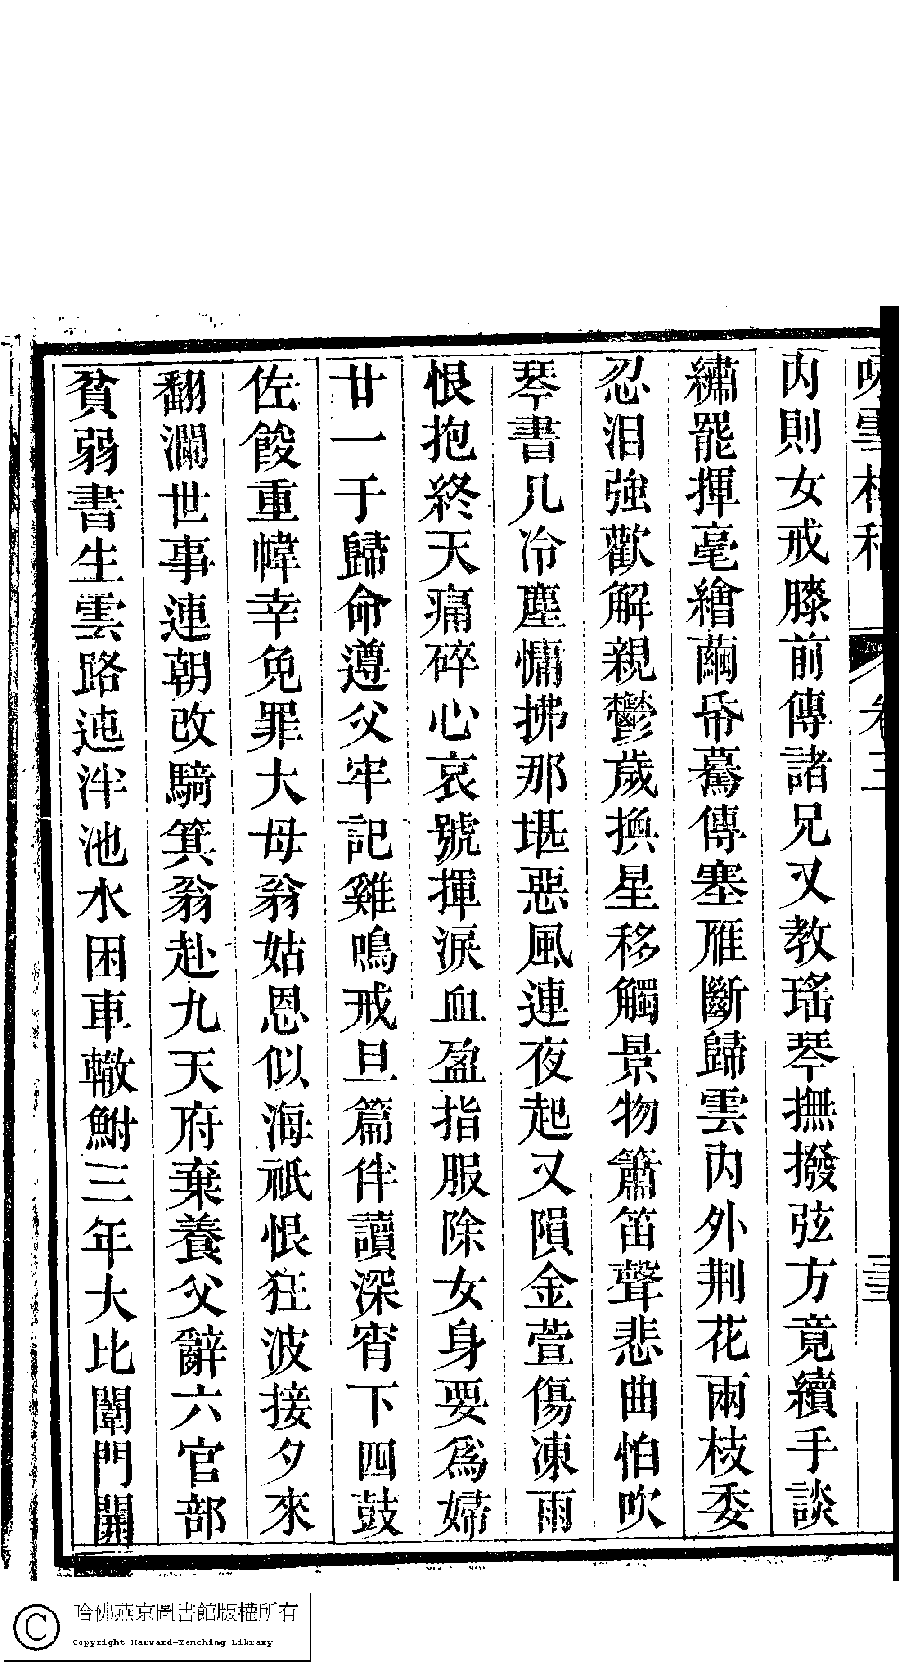 咏雪樓稿 卷三
内則女戒膝前傳諸兄又教瑤琴撫撥弦方竟續手談
繡罷揮毫繪繭帋驀傳塞雁斷歸雲内外荆花兩枝委
忍泪強歡解親鬱歲換星移觸景物簫笛聲悲曲怕吹
琴書几冷塵慵拂那堪惡風連夜起又隕金萱傷凍雨
恨抱終天痛碎心哀號揮淚血盈指服除女身要爲婦
廿一于歸命遵父牢記雞鳴戒旦篇伴讀深宵下四鼓
佐餕重幃幸免罪大母翁姑恩似海祇恨狂波接夕來
翻瀾世事連朝改騎箕翁赴九天府棄養父辭六官部
貧弱書生雲路迍泮池水困車轍鮒三年大比闈門開
哈佛燕京圖書館版權所有
Copyright Harvard-Yenching Library